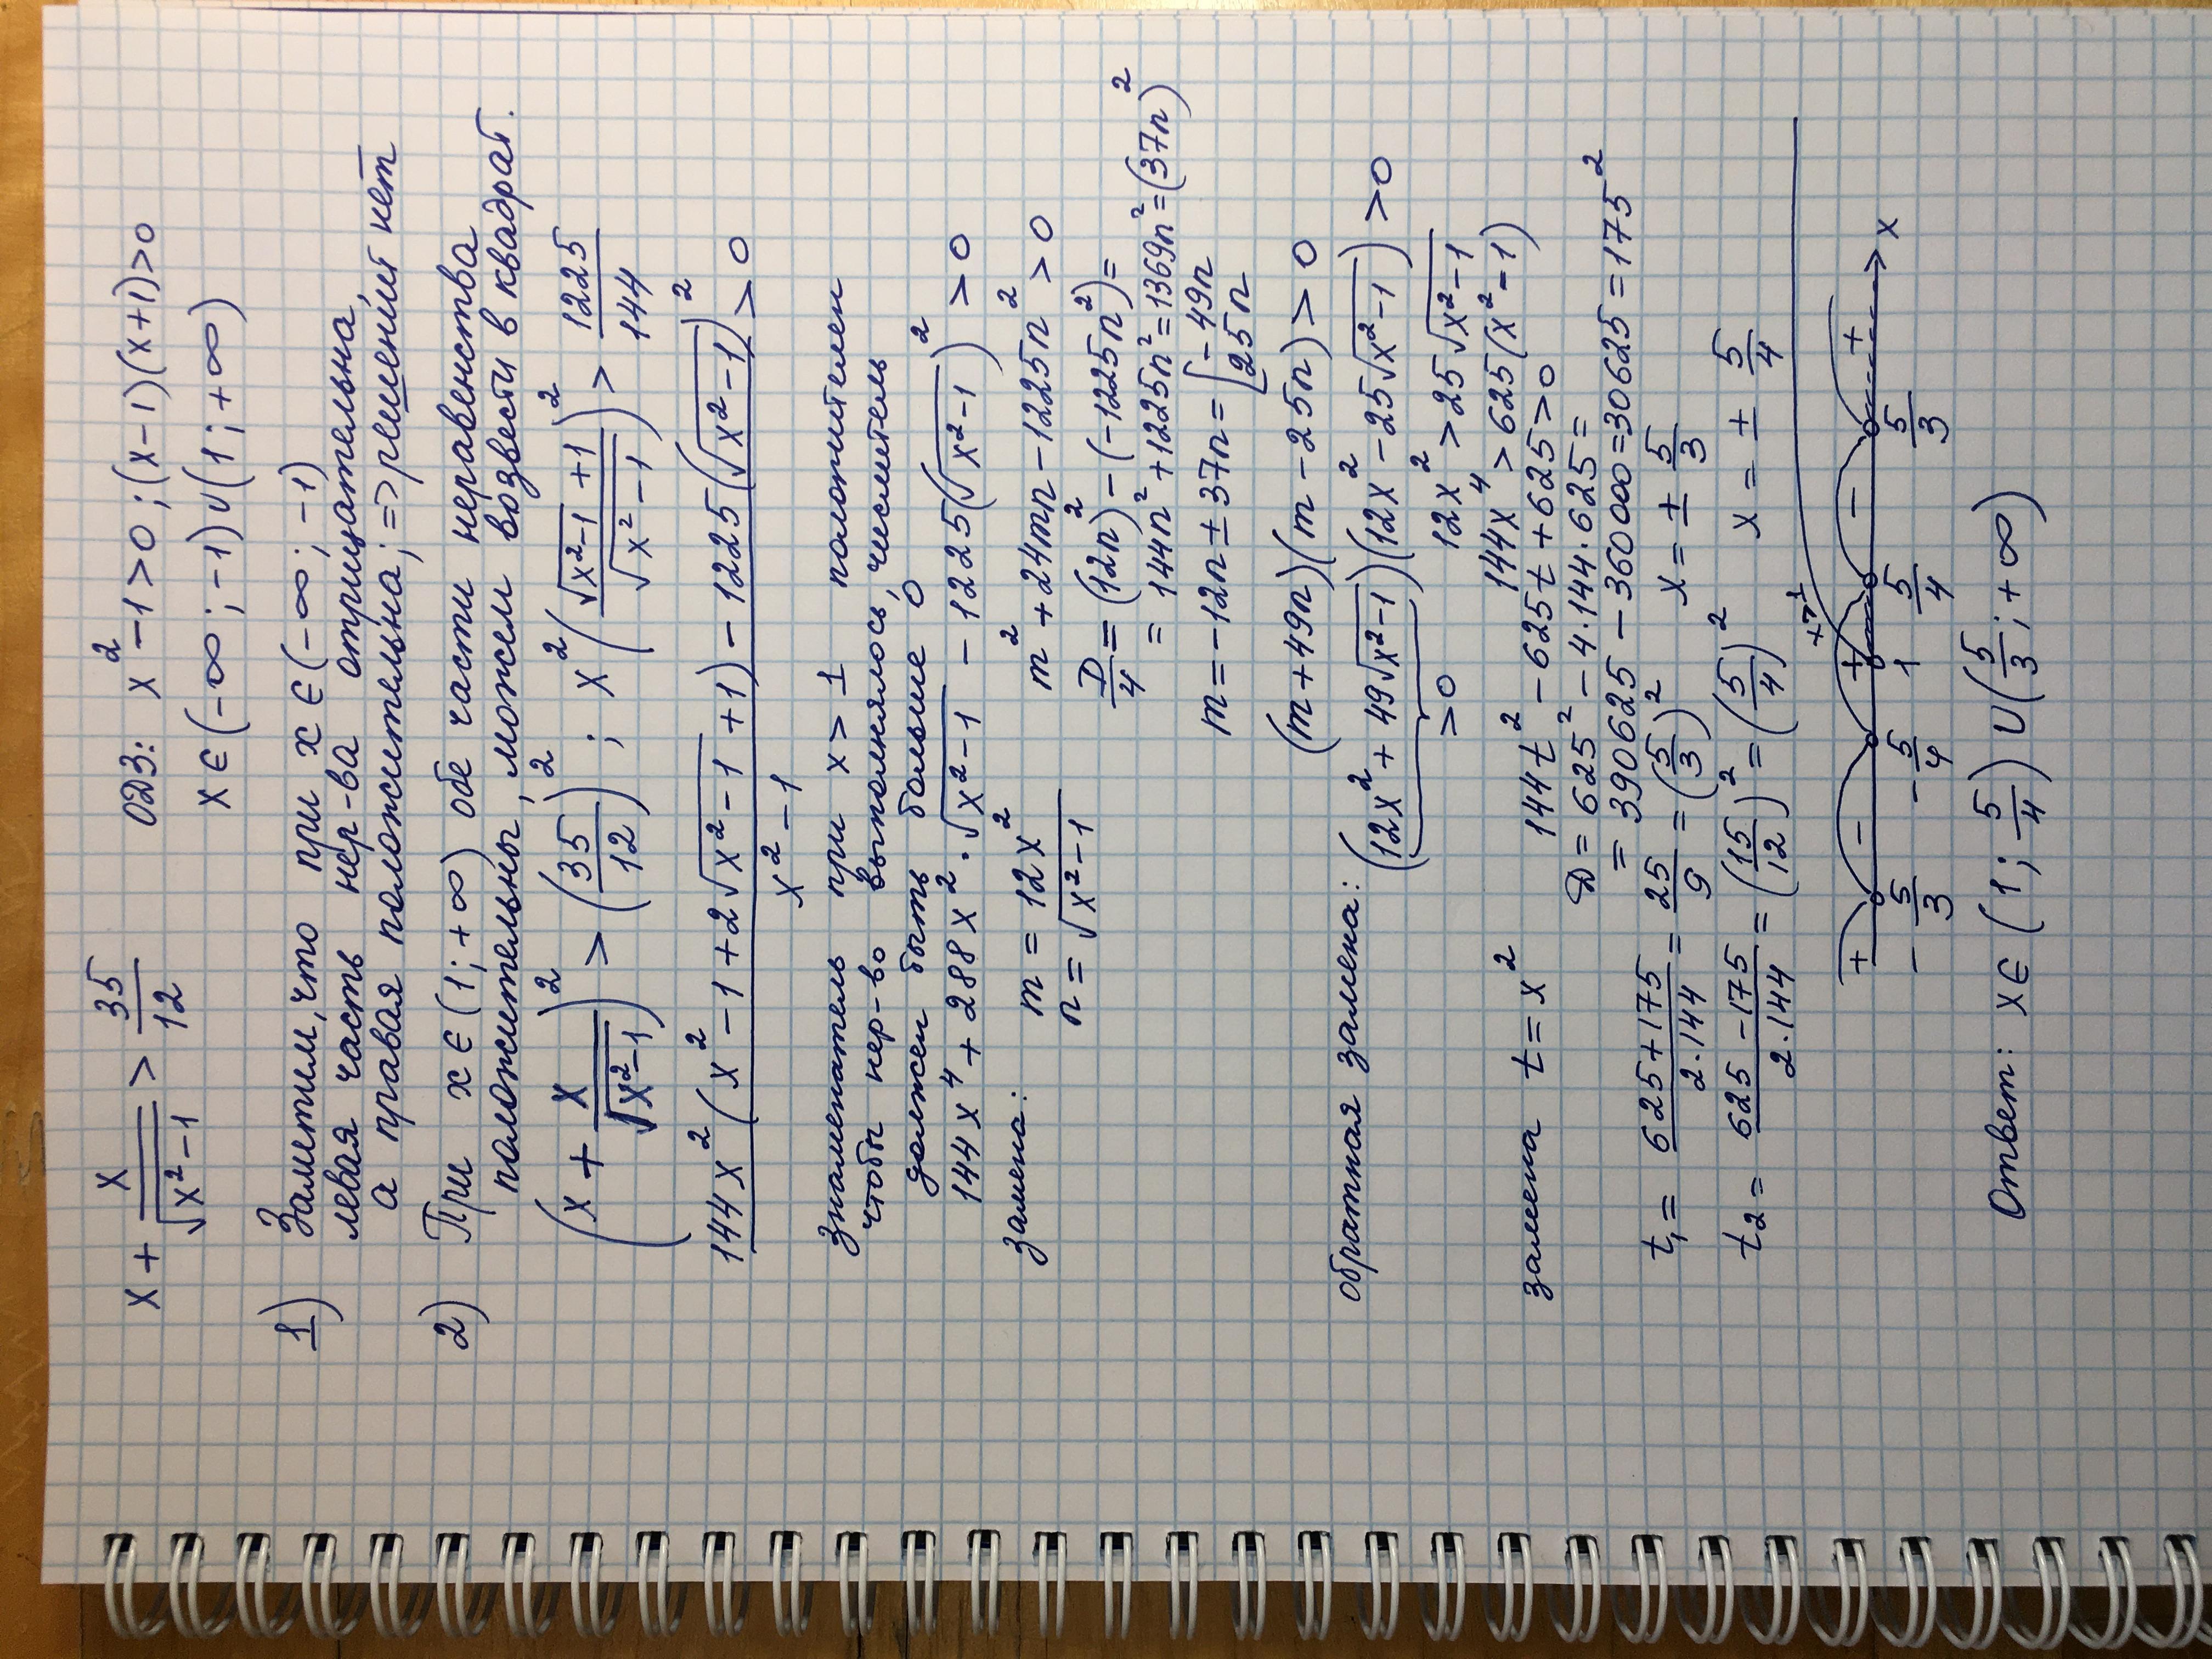 x + x/√(x²−1) > 35/12 ОДЗ: x²−1>0; (x−1)(x+1)>0
x∈(−∞;−1)∪(1;+∞)
1) Заметим, что при x∈(−∞;−1)
левая часть нер-ва отрицательна,
а правая положительна; => решений нет
2) При x∈(1;+∞) обе части неравенства
положительны, можем возвести в квадрат.
(x + x/√(x²−1))² > (35/12)²; x²((√(x²−1)+1)/√(x²−1))² > 1225/144
(144x²(x²−1+2√(x²−1)+1)−1225(√(x²−1))²)/(x²−1) > 0
Знаменатель при x>1 положителен
чтобы нер-во выполнялось, числитель
должен быть больше 0
144x⁴+288x²·√(x²−1) − 1225(√(x²−1))² > 0
замена: m = 12x² m²+24mn−1225n²>0
n = √(x²−1) D/4 = (12n)²−(−1225n²)=
= 144n²+1225n²=1369n²=(37n)²
m = −12n ± 37n = [−49n
25n
(m+49n)(m−25n)>0
обратная замена: (12x²+49√(x²−1))(12x²−25√(x²−1))>0
>0 12x²>25√(x²−1)
144x⁴>625(x²−1)
замена t=x² 144t²−625t+625>0
D=625²−4·144·625=
=390625−360000=30625=175²
t₁ = (625+175)/(2·144) = 25/9 = (5/3)² x = ± 5/3
t₂ = (625−175)/(2·144) = (15/12)² = (5/4)² x = ± 5/4
x>1
+ − + − + x
−5/3 −5/4 1 5/4 5/3
Ответ: x∈(1; 5/4)∪(5/3; +∞)